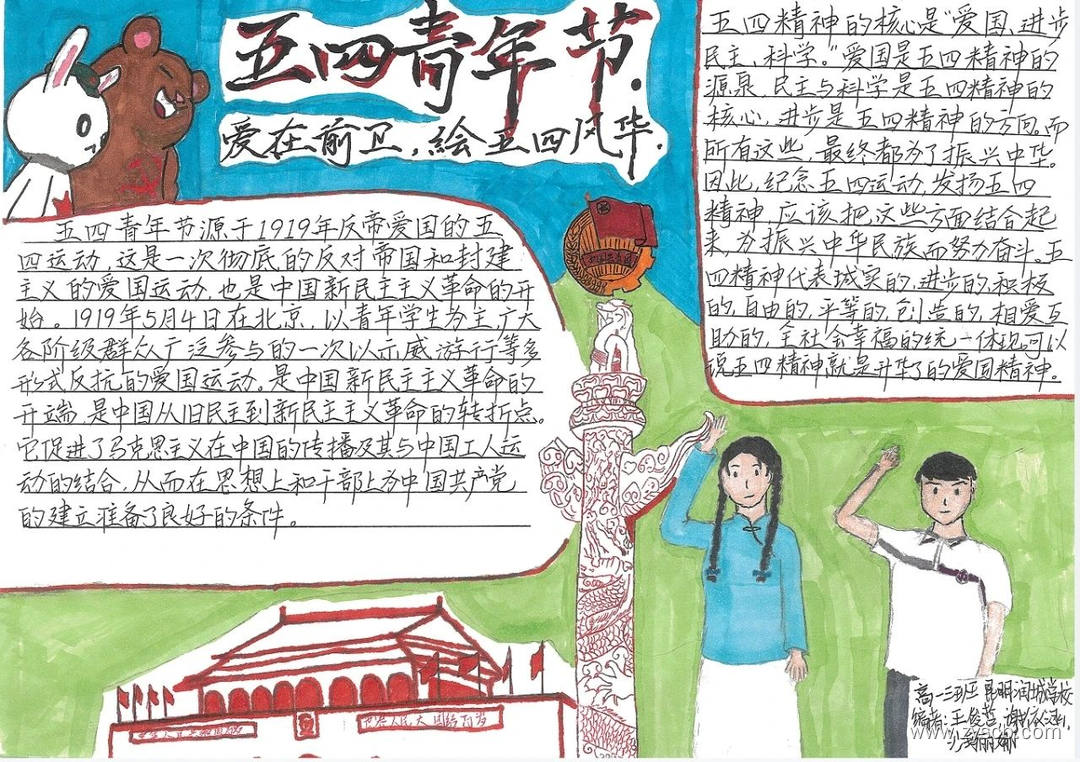 五四青年节.
爱在前卫,绘五四风华.
五四青年节源于1919年反帝爱国的五
四运动,这是一次彻底的反对帝国和封建
主义的爱国运动,也是中国新民主主义革命的开
始。1919年5月4日在北京,以青年学生为主,广大
各阶级群众广泛参与的一次以示威游行等多
形式反抗的爱国运动。是中国新民主主义革命的
开端,是中国从旧民主到新民主主义革命的转折点。
它促进了马克思主义在中国的传播及其与中国工人运
动的结合,从而在思想上和干部上为中国共产党
的建立准备了良好的条件。
五四精神的核心是“爱国、进步
民主、科学。”爱国是五四精神的
源泉,民主与科学是五四精神的
核心,进步是五四精神的方向。而
所有这些,最终都为了振兴中华。
因此,纪念五四运动,发扬五四
精神,应该把这些方面结合起
来,为振兴中华民族而努力奋斗。五
四精神代表诚实的,进步的,积极
的,自由的,平等的,创造的,相爱互
助的,全社会幸福的统一体现,可以
说五四精神,就是升华了的爱国精神。
世界人民大团结万岁
高一三班 昆明润城学校
编者:王俊